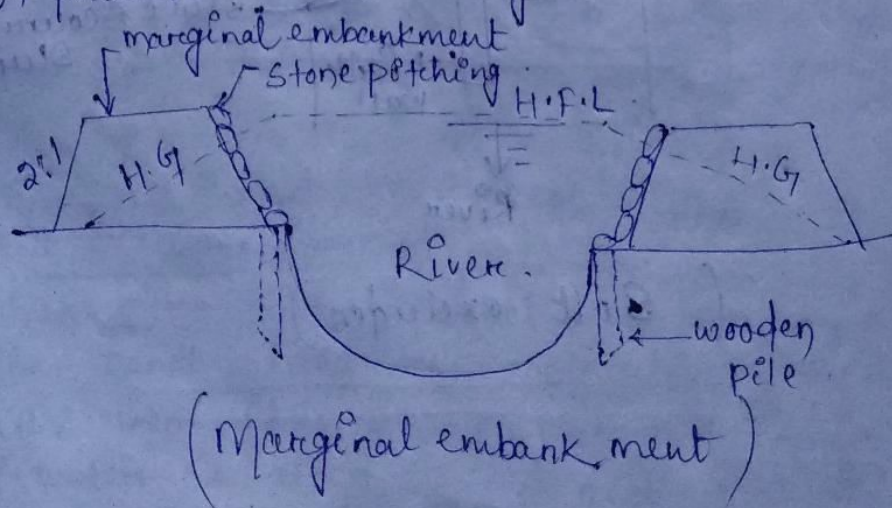 marginal embankment
Stone pitching
H.F.L
2:1
H.G
H.G
River.
wooden
pile
(Marginal embankment)